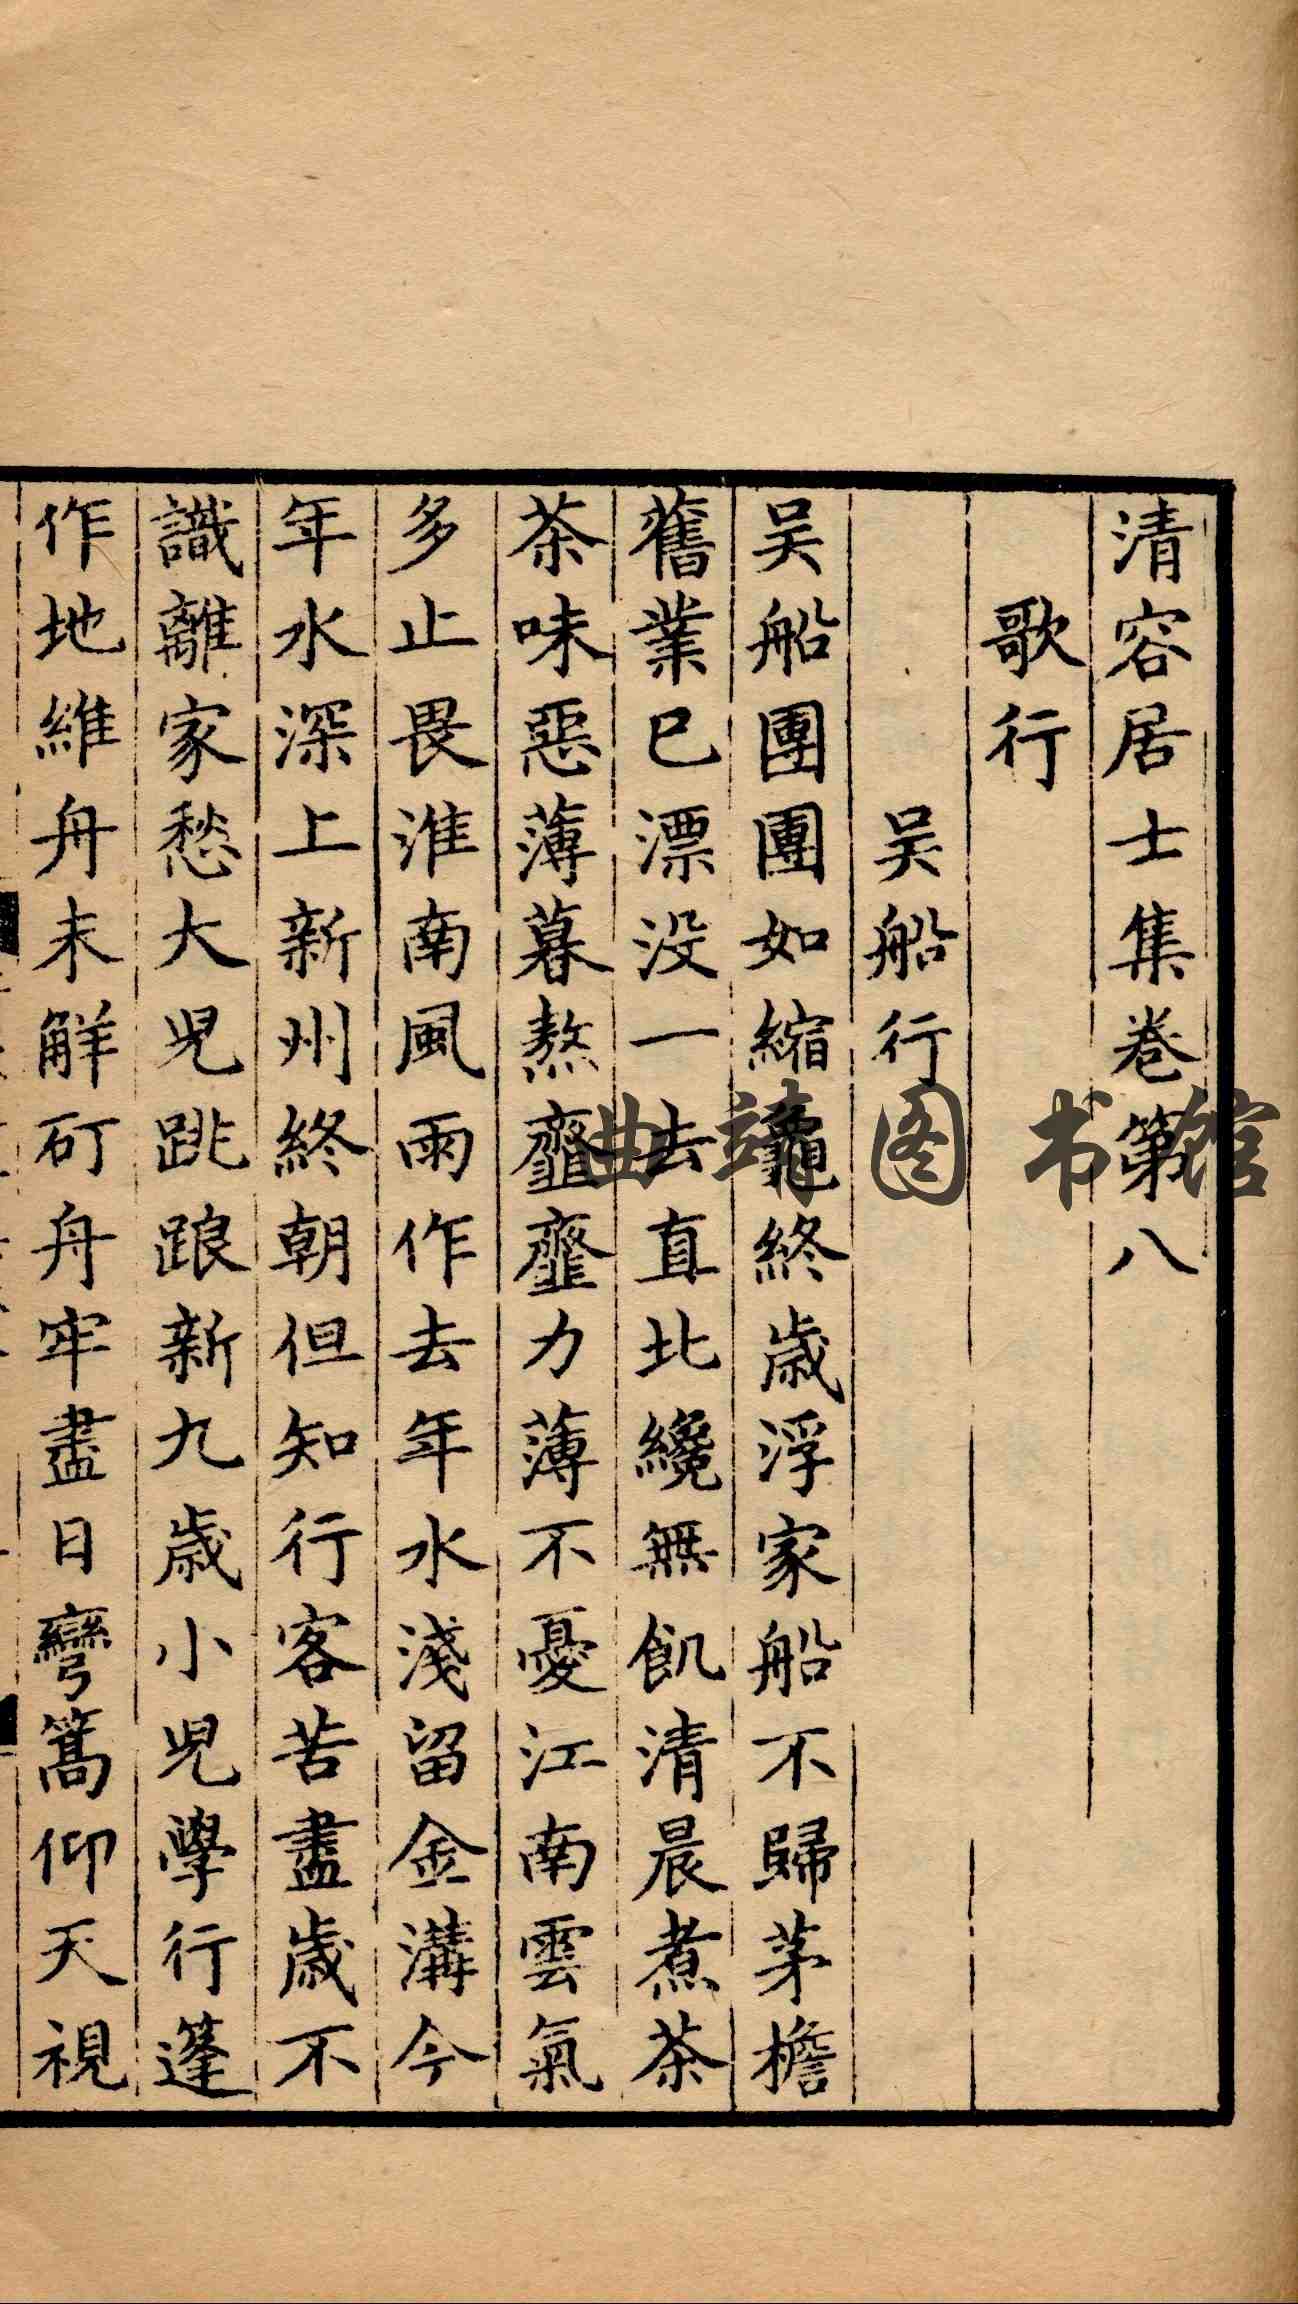 清容居士集卷第八
歌行
吴船行
吴船團團如縮龜終歲浮家船不歸茅檐
舊業已漂没一去直北纔無飢清晨煮茶
茶味惡薄暮熬虀虀力薄不憂江南雲氣
多止畏淮南風雨作去年水淺留金溝今
年水深上新州終朝但知行客苦盡歲不
識離家愁大兒跳踉新九歲小兒學行蓬
作地維舟未解矴舟牢盡日彎篙仰天視
曲靖图书馆